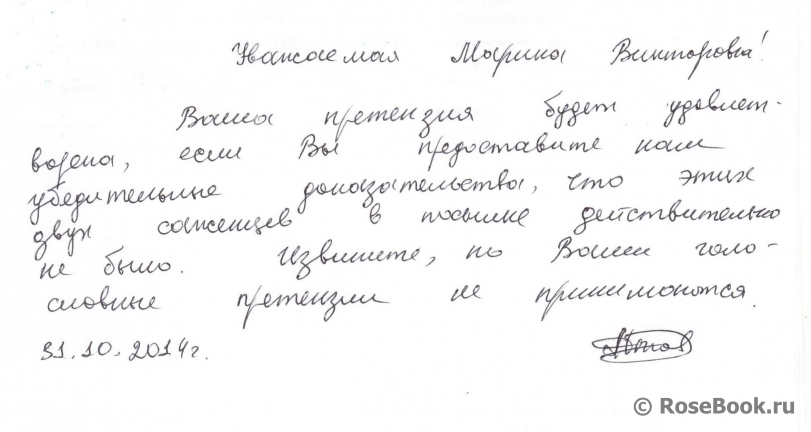 Уважаемая Марина Викторовна!
Ваша претензия будет удовлет-
ворена, если Вы предоставите нам
убедительные доказательства, что этих
двух саженцев в посылке действительно
не было. Извините, но Ваши голо-
словные претензии не принимаются.
31.10.2014г.
© RoseBook.ru